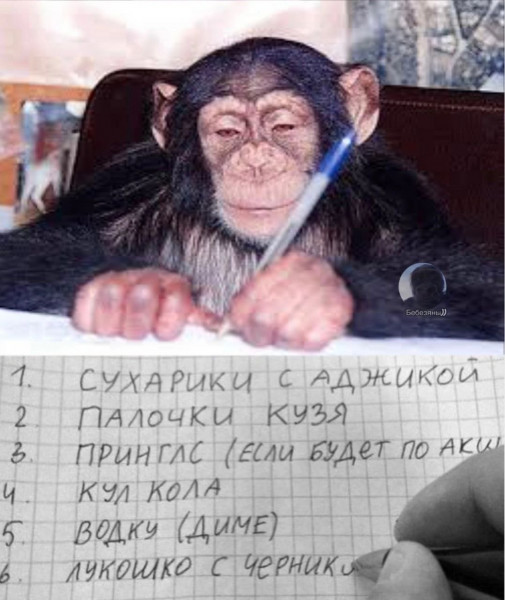 Бабазяны))
1. СУХАРИКИ С АДЖИКОЙ
2 ПАЛОЧКИ КУЗЯ
3. ПРИНГЛС (ЕСЛИ БУДЕТ ПО АКЦ
4. КУЛ КОЛА
5. ВОДКУ (ДИМЕ)
6. ЛУКОШКО С ЧЕРНИКО